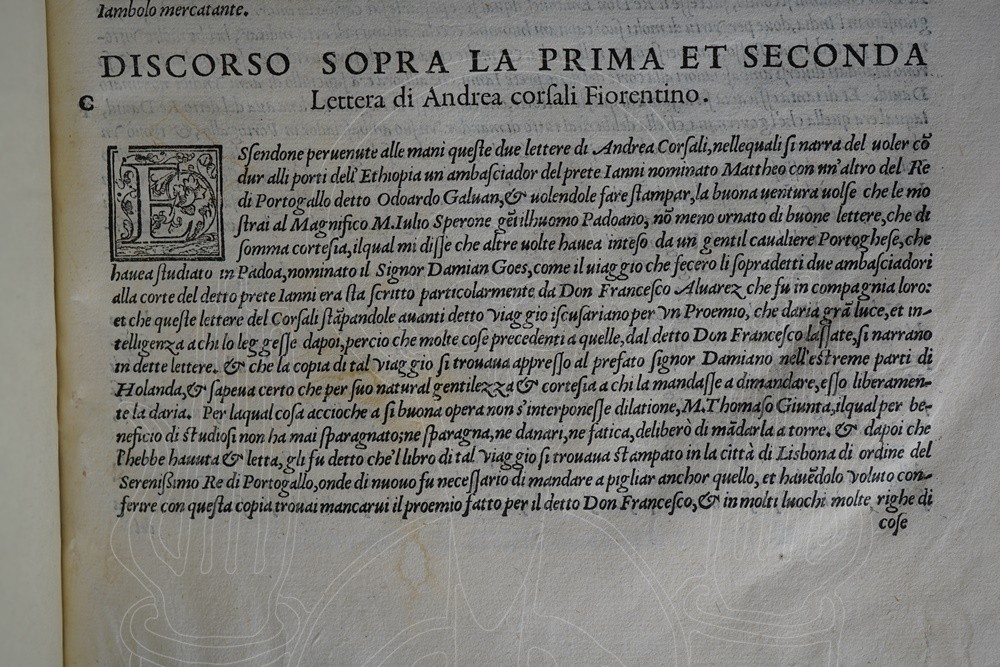 Iambolo mercatante.
DISCORSO SOPRA LA PRIMA ET SECONDA
C
Lettera di Andrea corſali Fiorentino.
ESſendone peruenute alle mani queſte due lettere di Andrea Corſali, nellequali ſi narra del uoler cõ
dur alli porti dell'Ethiopia un ambaſciador del prete Ianni nominato Mattheo con vn'altro del Re
di Portogallo detto Odoardo Galuan, & uolendole fare ſtampar, la buona uentura uolſe che le mo
ſtrai al Magnifico M. Iulio Sperone gẽtilhuomo Padoano, nõ meno ornato di buone lettere, che di
ſomma corteſia, ilqual mi diſſe che altre uolte hauea inteſo da un gentil caualiere Portogheſe, che
hauea ſtudiato in Padoa, nominato il Signor Damian Goes, come il uiaggio che fecero li ſopradetti due ambaſciadori
alla corte del detto prete Ianni era ſta ſcritto particolarmente da Don Franceſco Aluarez che fu in compagnia loro:
et che queſte lettere del Corſali ſtãpandole auanti detto Viaggio iſcuſariano per vn Proemio, che daria grã luce, et in-
telligenza a chi lo leggeſſe dapoi, percio che molte coſe precedenti a quelle, dal detto Don Franceſco laſſate, ſi narrano
in dette lettere. & che la copia di tal Viaggio ſi trouaua appreſſo al prefato ſignor Damiano nell'eſtreme parti di
Holanda, & ſapeua certo che per ſuo natural gentilezza & corteſia a chi la mandaſſe a dimandare, eſſo liberamen-
te la daria. Per laqual coſa accioche a ſi buona opera non s'interponeſſe dilatione, M. Thomaſo Giunta, ilqual per be-
neficio di ſtudioſi non ha mai ſparagnato, ne ſparagna, ne danari, ne fatica, deliberò di mãdarla a torre. & dapoi che
l'hebbe hauuta & letta, gli fu detto che'l libro di tal Viaggio ſi trouaua ſtampato in la città di Lisbona di ordine del
Sereniſsimo Re di Portogallo, onde di nuouo fu neceſſario di mandare a pigliar anchor quello, et hauẽdolo voluto con-
ferire con queſta copia trouai mancarui il proemio fatto per il detto Don Franceſco, & in molti luochi molte righe di
coſe